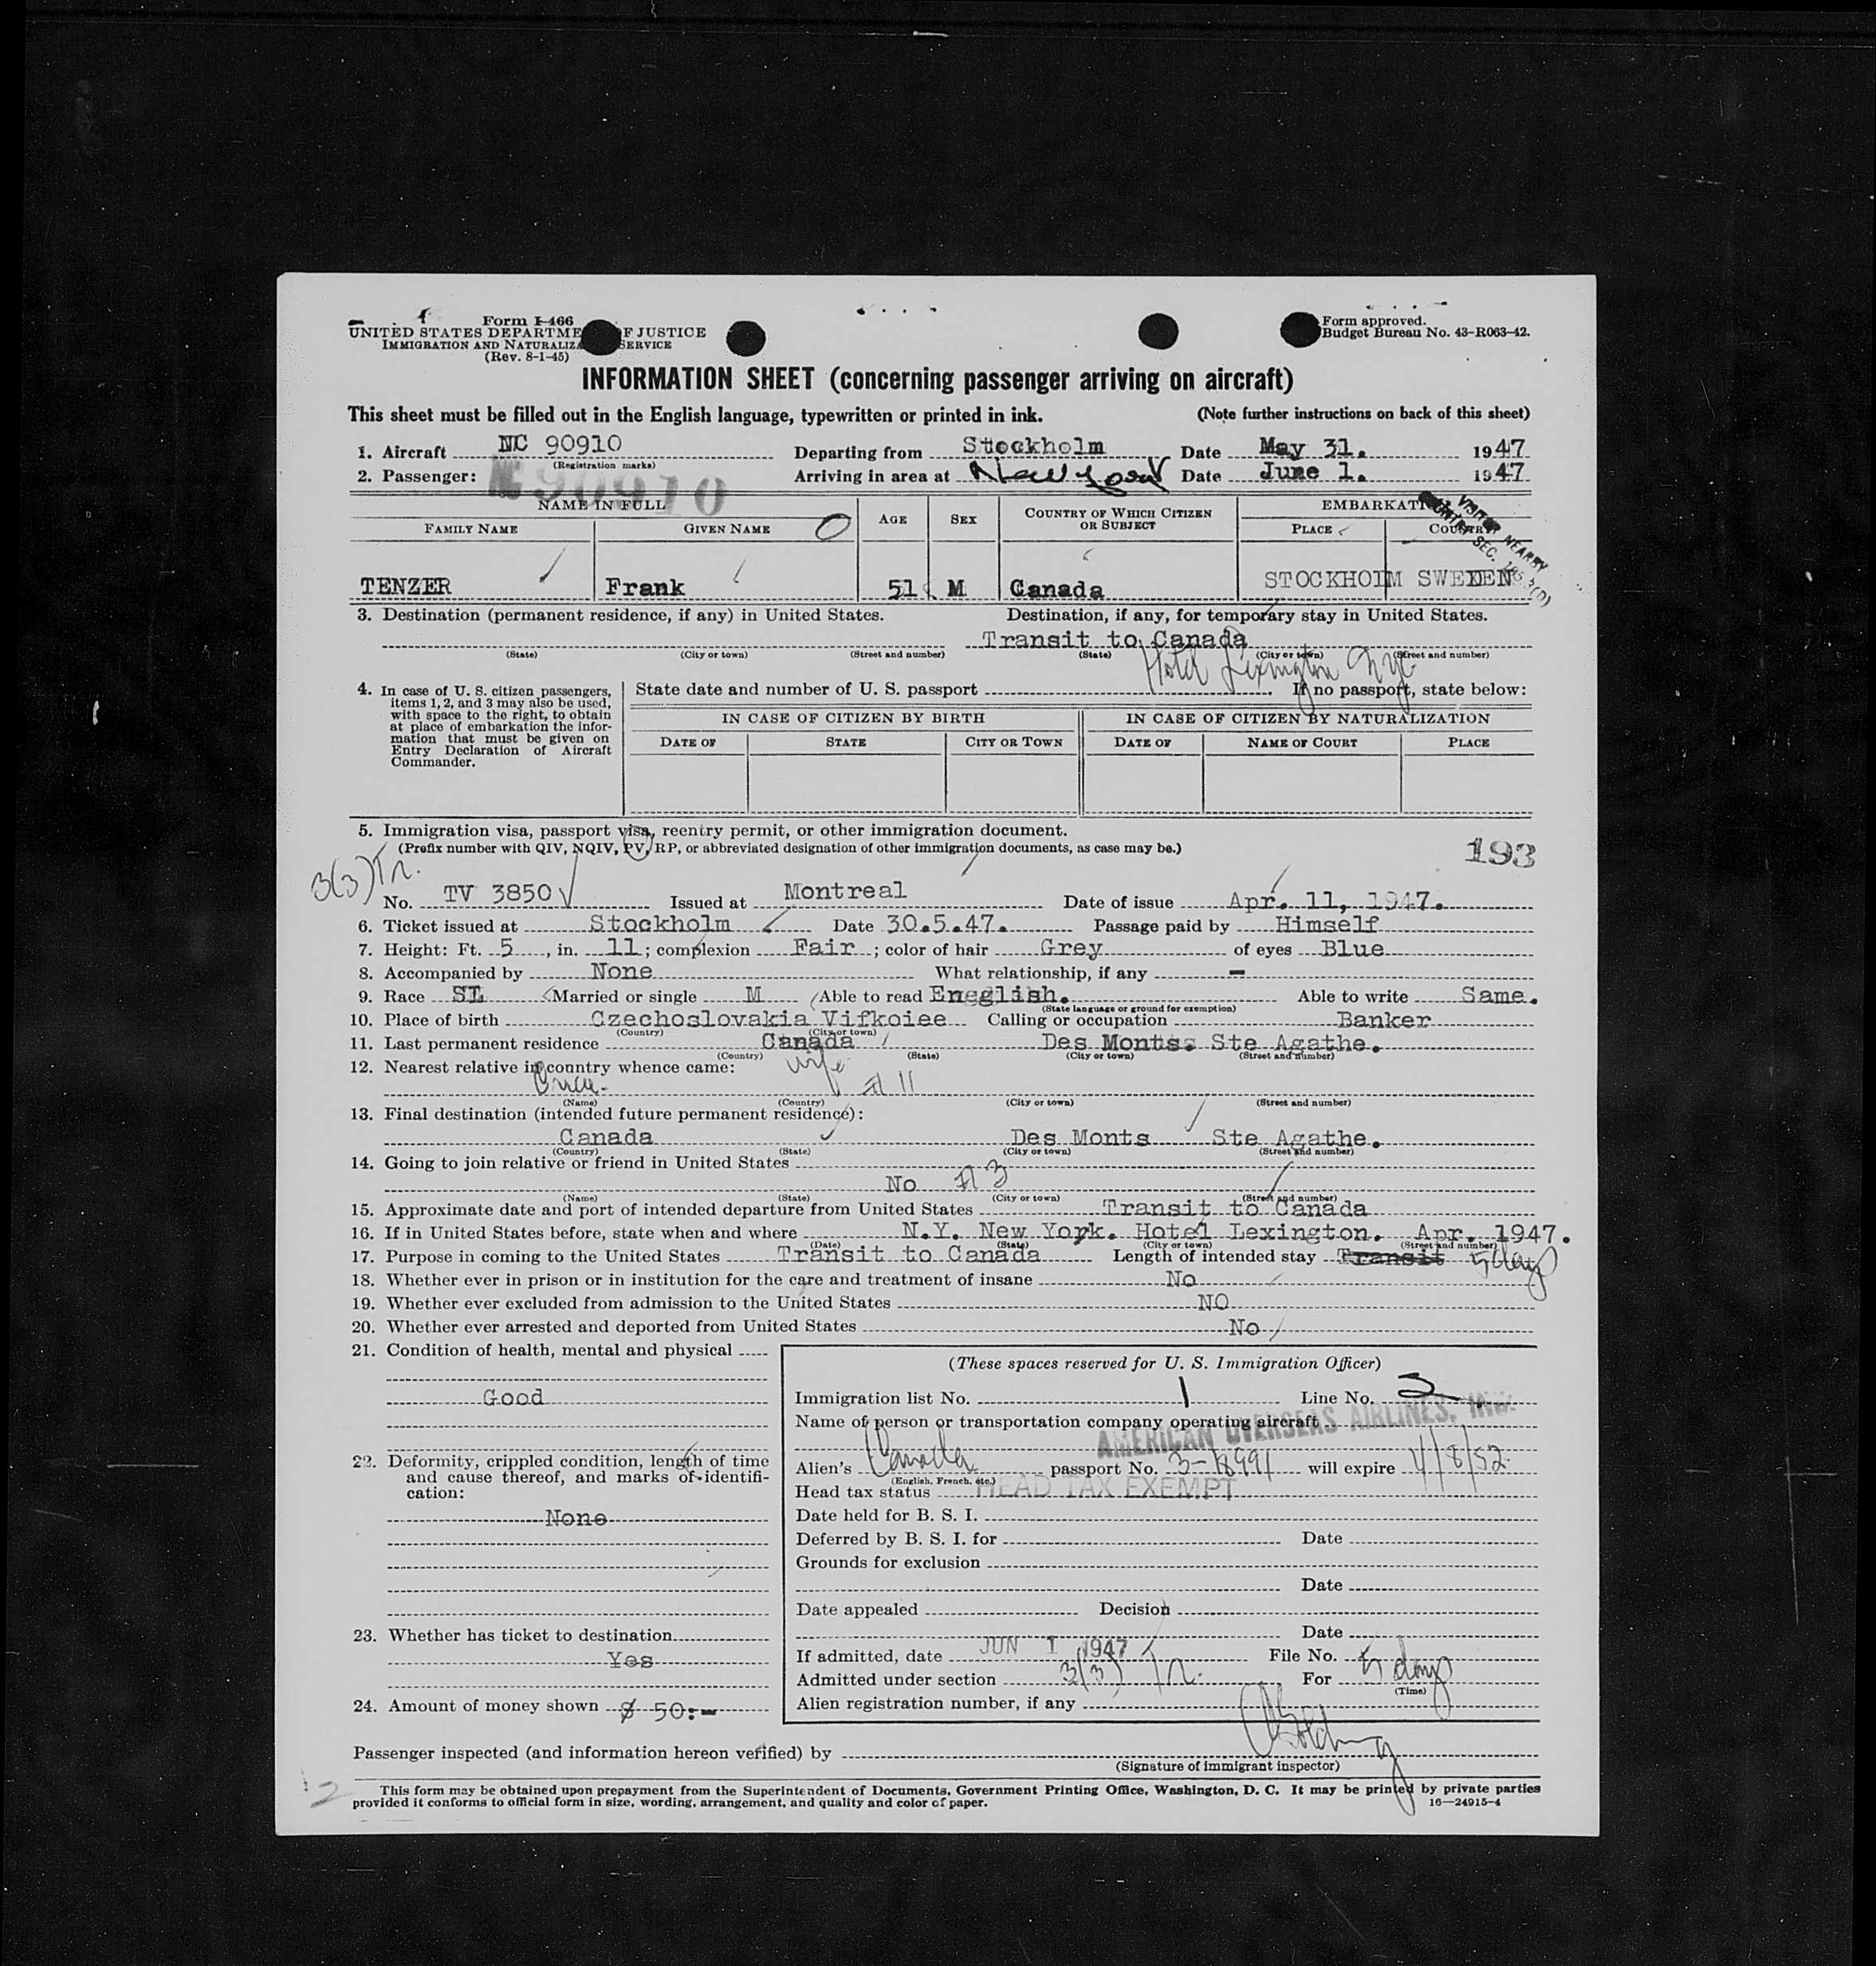 Form I-466
UNITED STATES DEPARTME F JUSTICE
IMMIGRATION AND NATURALIZA SERVICE
(Rev. 8-1-45)
Form approved.
Budget Bureau No. 43-R063-42.
INFORMATION SHEET (concerning passenger arriving on aircraft)
This sheet must be filled out in the English language, typewritten or printed in ink. (Note further instructions on back of this sheet)
1. Aircraft NC 90910 Departing from Stockholm Date May 31. 1947
(Registration marks)
2. Passenger: NC 90910 Arriving in area at New York Date June 1. 1947
NAME IN FULL AGE SEX COUNTRY OF WHICH CITIZEN OR SUBJECT EMBARKATI
FAMILY NAME GIVEN NAME PLACE COUNTRY
VISITOR NEARBY
TENZER Frank 51 M Canada STOCKHOLM SWEDEN
3. Destination (permanent residence, if any) in United States. Destination, if any, for temporary stay in United States.
Transit to Canada
(State) (City or town) (Street and number) (State) (City or town) (Street and number)
Hotel Lexington NYC
4. In case of U. S. citizen passengers, items 1, 2, and 3 may also be used, with space to the right, to obtain at place of embarkation the information that must be given on Entry Declaration of Aircraft Commander.
State date and number of U. S. passport If no passport, state below:
IN CASE OF CITIZEN BY BIRTH IN CASE OF CITIZEN BY NATURALIZATION
DATE OF STATE CITY OR TOWN DATE OF NAME OF COURT PLACE
5. Immigration visa, passport visa, reentry permit, or other immigration document.
(Prefix number with QIV, NQIV, PV, RP, or abbreviated designation of other immigration documents, as case may be.)
193
3(3) Tr.
No. TV 3850 Issued at Montreal Date of issue Apr. 11, 1947.
6. Ticket issued at Stockholm Date 30.5.47. Passage paid by Himself
7. Height: Ft. 5, in. 11; complexion Fair; color of hair Grey of eyes Blue
8. Accompanied by None What relationship, if any -
9. Race SL Married or single M Able to read Eneglish. Able to write Same.
(State language or ground for exemption)
10. Place of birth Czechoslovakia Vifkoiee Calling or occupation Banker
(Country) (City or town)
11. Last permanent residence Canada Des Monts. Ste Agathe.
(Country) (State) (City or town) (Street and number)
12. Nearest relative in country whence came: wife
11
(Name) (Country) (City or town) (Street and number)
13. Final destination (intended future permanent residence):
Canada Des Monts Ste Agathe.
(Country) (State) (City or town) (Street and number)
14. Going to join relative or friend in United States
No
(Name) (State) (City or town) (Street and number)
15. Approximate date and port of intended departure from United States Transit to Canada
16. If in United States before, state when and where N.Y. New York. Hotel Lexington. Apr. 1947.
(Date) (State) (City or town) (Street and number)
17. Purpose in coming to the United States Transit to Canada Length of intended stay Transit 5 days
18. Whether ever in prison or in institution for the care and treatment of insane No
19. Whether ever excluded from admission to the United States NO
20. Whether ever arrested and deported from United States No
21. Condition of health, mental and physical
Good
22. Deformity, crippled condition, length of time and cause thereof, and marks of identification:
None
23. Whether has ticket to destination
Yes
24. Amount of money shown $ 50:-
(These spaces reserved for U. S. Immigration Officer)
Immigration list No. 1 Line No. 3
Name of person or transportation company operating aircraft
AMERICAN OVERSEAS AIRLINES, INC.
Alien's Canada passport No. 3-18991 will expire 4/8/52
(English, French, etc.)
Head tax status HEAD TAX EXEMPT
Date held for B. S. I.
Deferred by B. S. I. for Date
Grounds for exclusion
Date
Date appealed Decision
Date
If admitted, date JUN 1 1947 File No.
Admitted under section 3(3) Tr. For 5 days
(Time)
Alien registration number, if any
Passenger inspected (and information hereon verified) by
(Signature of immigrant inspector)
This form may be obtained upon prepayment from the Superintendent of Documents, Government Printing Office, Washington, D. C. It may be printed by private parties
provided it conforms to official form in size, wording, arrangement, and quality and color of paper. 16—24915-4